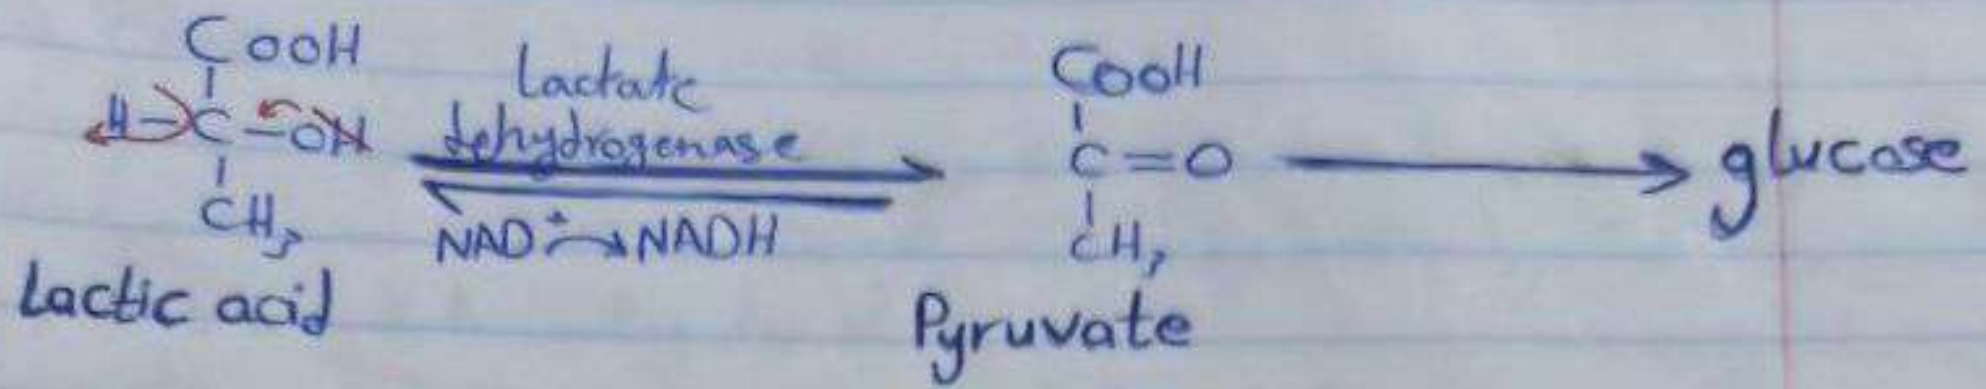 COOH
H-C-OH
CH3
Lactic acid
Lactate
dehydrogenase
NAD+ → NADH
COOH
C=O
CH3
Pyruvate
glucose